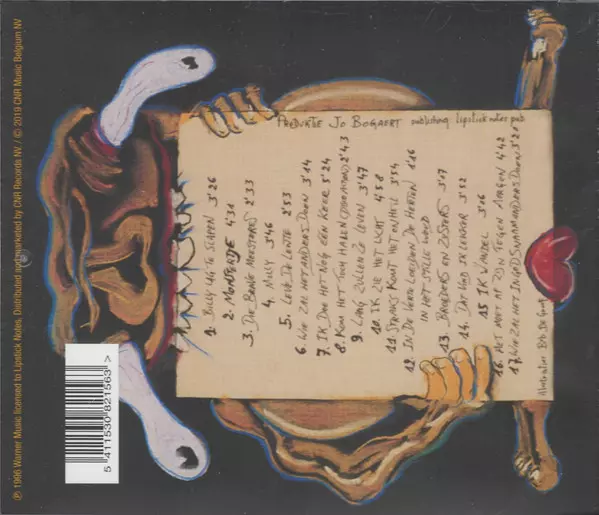 PRODUKTIE JO BOGAERT publishing lipstick notes pub
1. BILLY LIG TE SLAPEN 3'26
2. MONSTERTJE 4'31
3. DIE BANGE MONSTERS 2'33
4. MILLY 3'46
5. LEVE DE LENTE 2'53
6. WIE ZAL HET ANDERS DOEN 3'14
7. IK DOE HET NOG EEN KEER 3'24
8. KOM HET TOCH HALEN 2'43
9. LANG ZULLEN ZE LEVEN 3'47
10. IK ZIE HET LICHT 4'58
11. STRAKS KOMT HET ONHEIL 3'54
12. IN DE VERTE LOEIDEN DE HERTEN 1'16
IN HET STILLE WOUD
13. BROEDERS EN ZUSTERS 3'07
14. DAT HAD IK LIEVER 3'52
15 IK WANDEL 3'06
16. HET MOET AF ZIJN TEGEN MORGEN 4'42
17. WIE ZAL HET IN GODSNAAM ANDERS DOEN 3'21
Illustraties
5 411530 821563 >
℗ 1996 Warner Music licensed to Lipstick Notes. Distributed and marketed by CNR Records NV. / © 2019 CNR Music Belgium NV